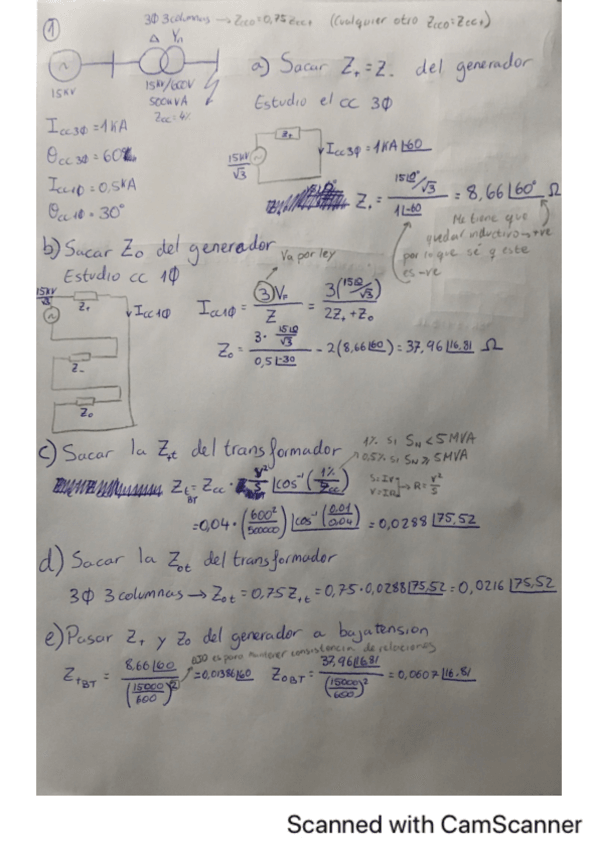 ① 3Φ 3 columnas → Zcco = 0,75 Zcc+ (Cualquier otro Zcco = Zcc+)
Δ Yn
15kV
15kV/600V
500kVA
Zcc = 4%
a) Sacar Z+ = Z- del generador
Estudio el cc 3Φ
Icc3Φ = 1kA
θcc3Φ = 60º
Icc1Φ = 0,5kA
θcc1Φ = 30°
Z+
15kV/√3
Icc3Φ = 1kA∠-60
Z+ = (15∠0°/√3)/(1∠-60) = 8,66∠60° Ω
Me tiene que
quedar inductivo → +ve
por lo que sé q este
es -ve
b) Sacar Zo del generador
Estudio cc 1Φ
Va por ley
15kV/√3
Z+
Icc1Φ
Z-
Zo
Icc1Φ = ③VF/Z = 3(15∠0/√3)/(2Z+ + Zo)
Zo = (3·15∠0/√3)/(0,5∠-30) - 2(8,66∠60) = 37,96∠16,81 Ω
c) Sacar la Z+t del transformador
1% si SN < 5MVA
0,5% si SN ≥ 5MVA
Z+t BT = Zcc · V²/S ∠cos⁻¹(1%/Zcc)
S=IV
V=IR → R = V²/S
= 0,04 · (600²/500000) ∠cos⁻¹(0.01/0.04) = 0,0288∠75,52
d) Sacar la Zot del transformador
3Φ 3 columnas → Zot = 0,75 Z+t = 0,75·0,0288∠75,52 = 0,0216∠75,52
e) Pasar Z+ y Zo del generador a baja tension
eso es para mantener consistencia de relaciones
Z+BT = 8,66∠60/(15000/600)² = 0,01386∠60 ZoBT = 37,96∠16,81/(15000/600)² = 0,0607∠16,81
Scanned with CamScanner